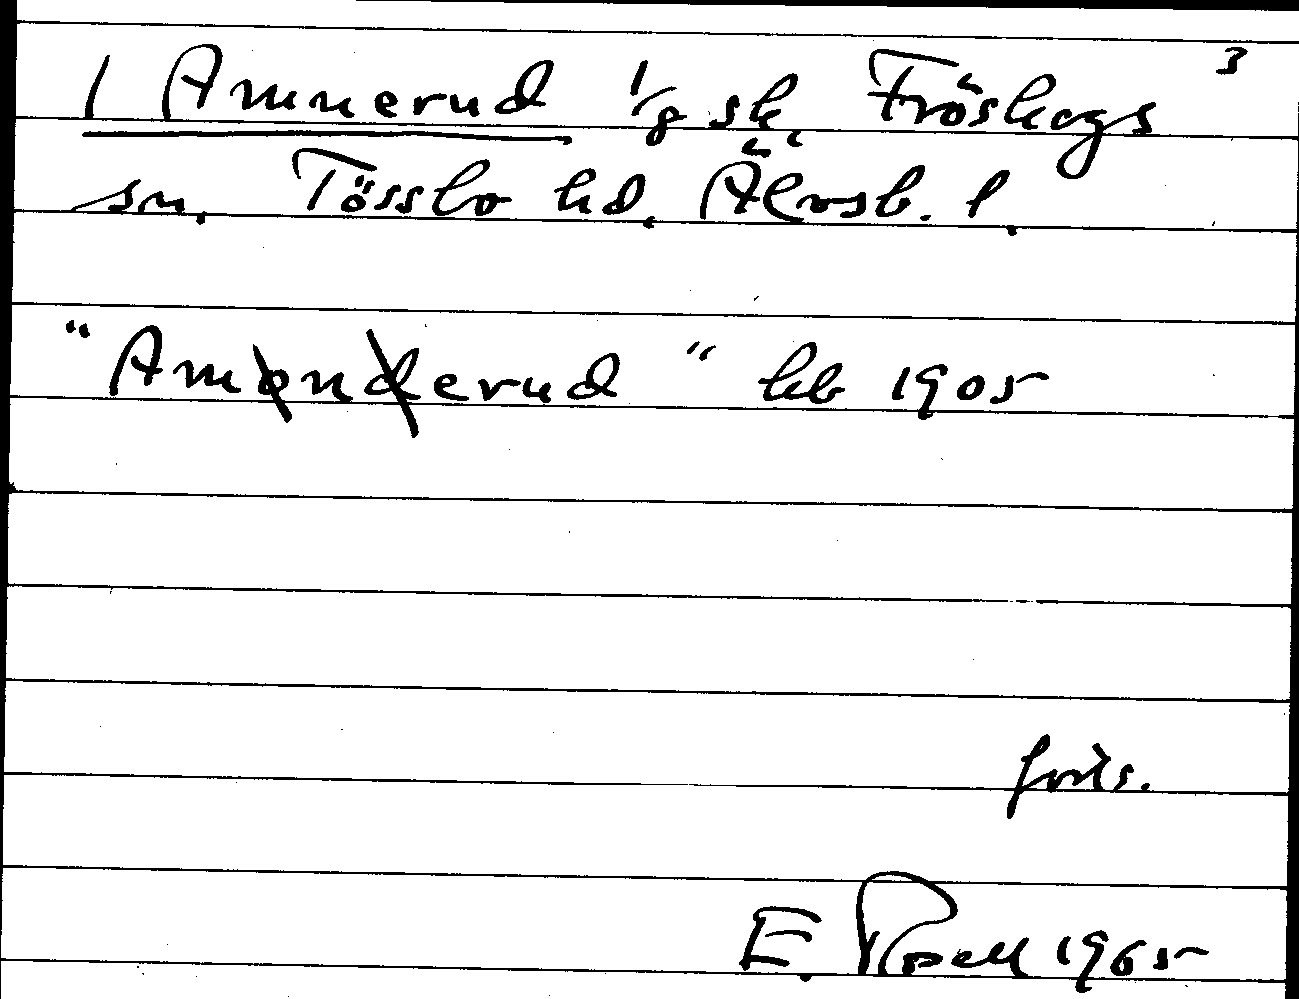 3
1 Amnerud 1/8 sk. Fröskogs
sn. Tössbo hd. Älvsb. l.
"Amonderud" kb 1905
forts.
E. Rosell 1965